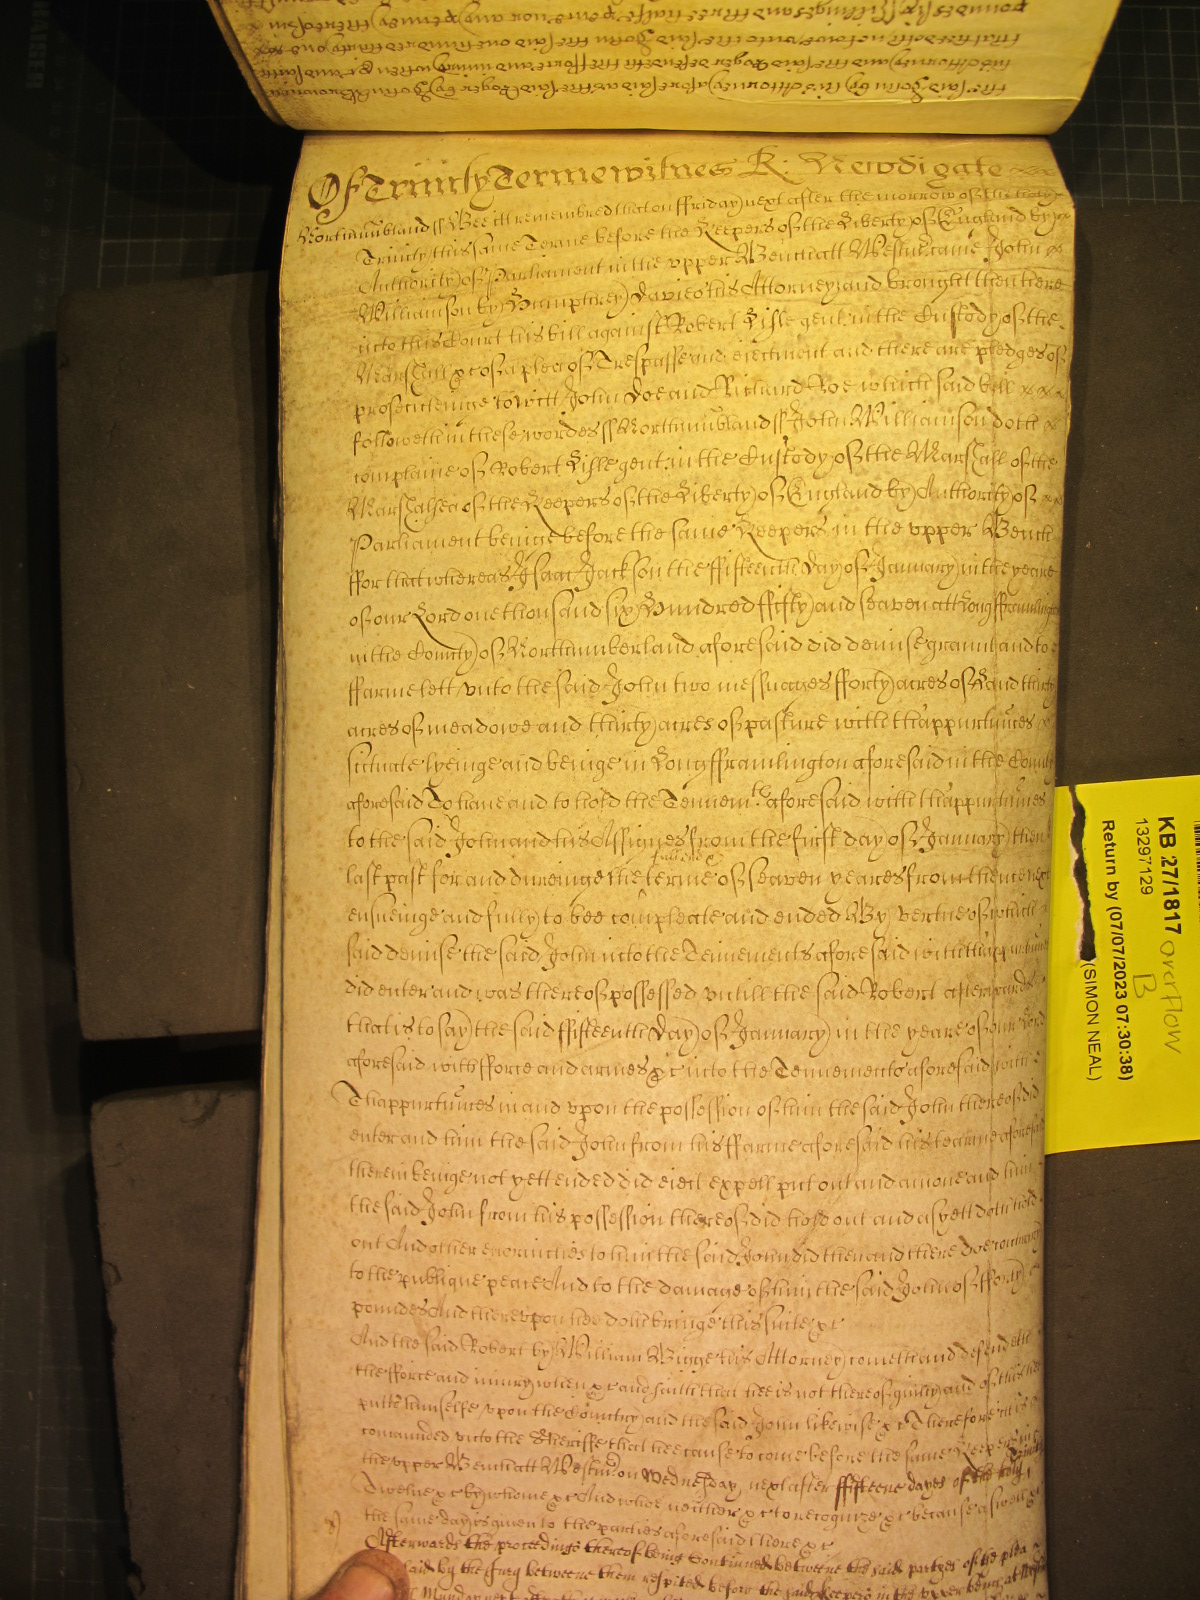 Of Trinity Terme witnes R: Newdigate
Northumbland ss Bee itt remembred that on ffriday next after the morrow of the holy
Trinity this same Terme before the Keepers of the Liberty of England by
Authority of Parliament in the upper Bench att Westm came John
Williamson by Humphrey Davies his Attorney and brought then here
into this Court his bill against Robert Lisle gent in the Custody of the
Marshall &c of a plea of Trespasse and eiectment and there are pledges of
prosecuteinge to witt John Doe and Richard Roe which said bill
followeth in these wordes ss Northumbland ss John Williamson doth
complaine of Robert Lisle gent in the Custody of the Marshall of the
Marshalsea of the Keepers of the Liberty of England by Authority of
Parliament beinge before the same Keepers in the upper Bench
ffor that whereas Isaac Jackson the ffifteenth Day of January in the yeare
of our Lord one thousand six Hundred ffifty and seaven att Long fframlington
in the County of Northumberland aforesaid did demise graunt and to
ffarme lett vnto the said John two messuages fforty acres of Land thirty
acres of meadowe and thirty acres of pasture with thappurtnces
scituate lyeinge and beinge in Long fframlington aforesaid in the County
aforesaid To have and to hold the Tenemts aforesaid with thappurtnces
to the said John and his Assignes from the first day of January then
last past for and dureinge the terme of seaven yeares from thence next
ensueinge and fully to bee compleate and ended By vertue of which
said demise the said John into the Tenements aforesaid with thappurtnces
did enter and was thereof possessed vntill the said Robert afterwards
that is to say the said ffifteenth Day of January in the yeare of our Lord
aforesaid with fforce and armes &c into the Tennements aforesaid with
Thappurtnces in and vpon the possession of him the said John thereof did
enter and him the said John from his ffarme aforesaid his tearme aforesaid
therein beinge not yett ended did eiect expell put out and amove and him
the said John from his possession thereof did hold out and as yett doth hold
out And other enormities to him the said John did then and there doe contrary
to the publique peace And to the damage of him the said John of fforty
poundes And therevpon hee doth bringe this suite &c
And the said Robert by William Bigge his Attorney cometh and defendeth
the fforce and iniury when &c and saith that hee is not thereof guilty and of this hee
putts himselfe vpon the Country and the said John likewise &c Therefore itt is
comanded vnto the Sheriffe that hee cause to come before the same Keepers in
the vpper Bench att Westm on Wednesday next after ffifteene dayes of the holy Trinity
Twelve &c by whome &c And whoe neither &c to recognize &c because aswell &c
the same day is given to the parties aforesaid there &c
Afterwards the proceedings thereof being Continued betweene the said partyes of the plea
said by the Jury betweene them respited before the said Keepers in the vpper bench at Westm
KB 27/1817 overflow
B
13297129
Return by (07/07/2023 07:30:38)
(SIMON NEAL)